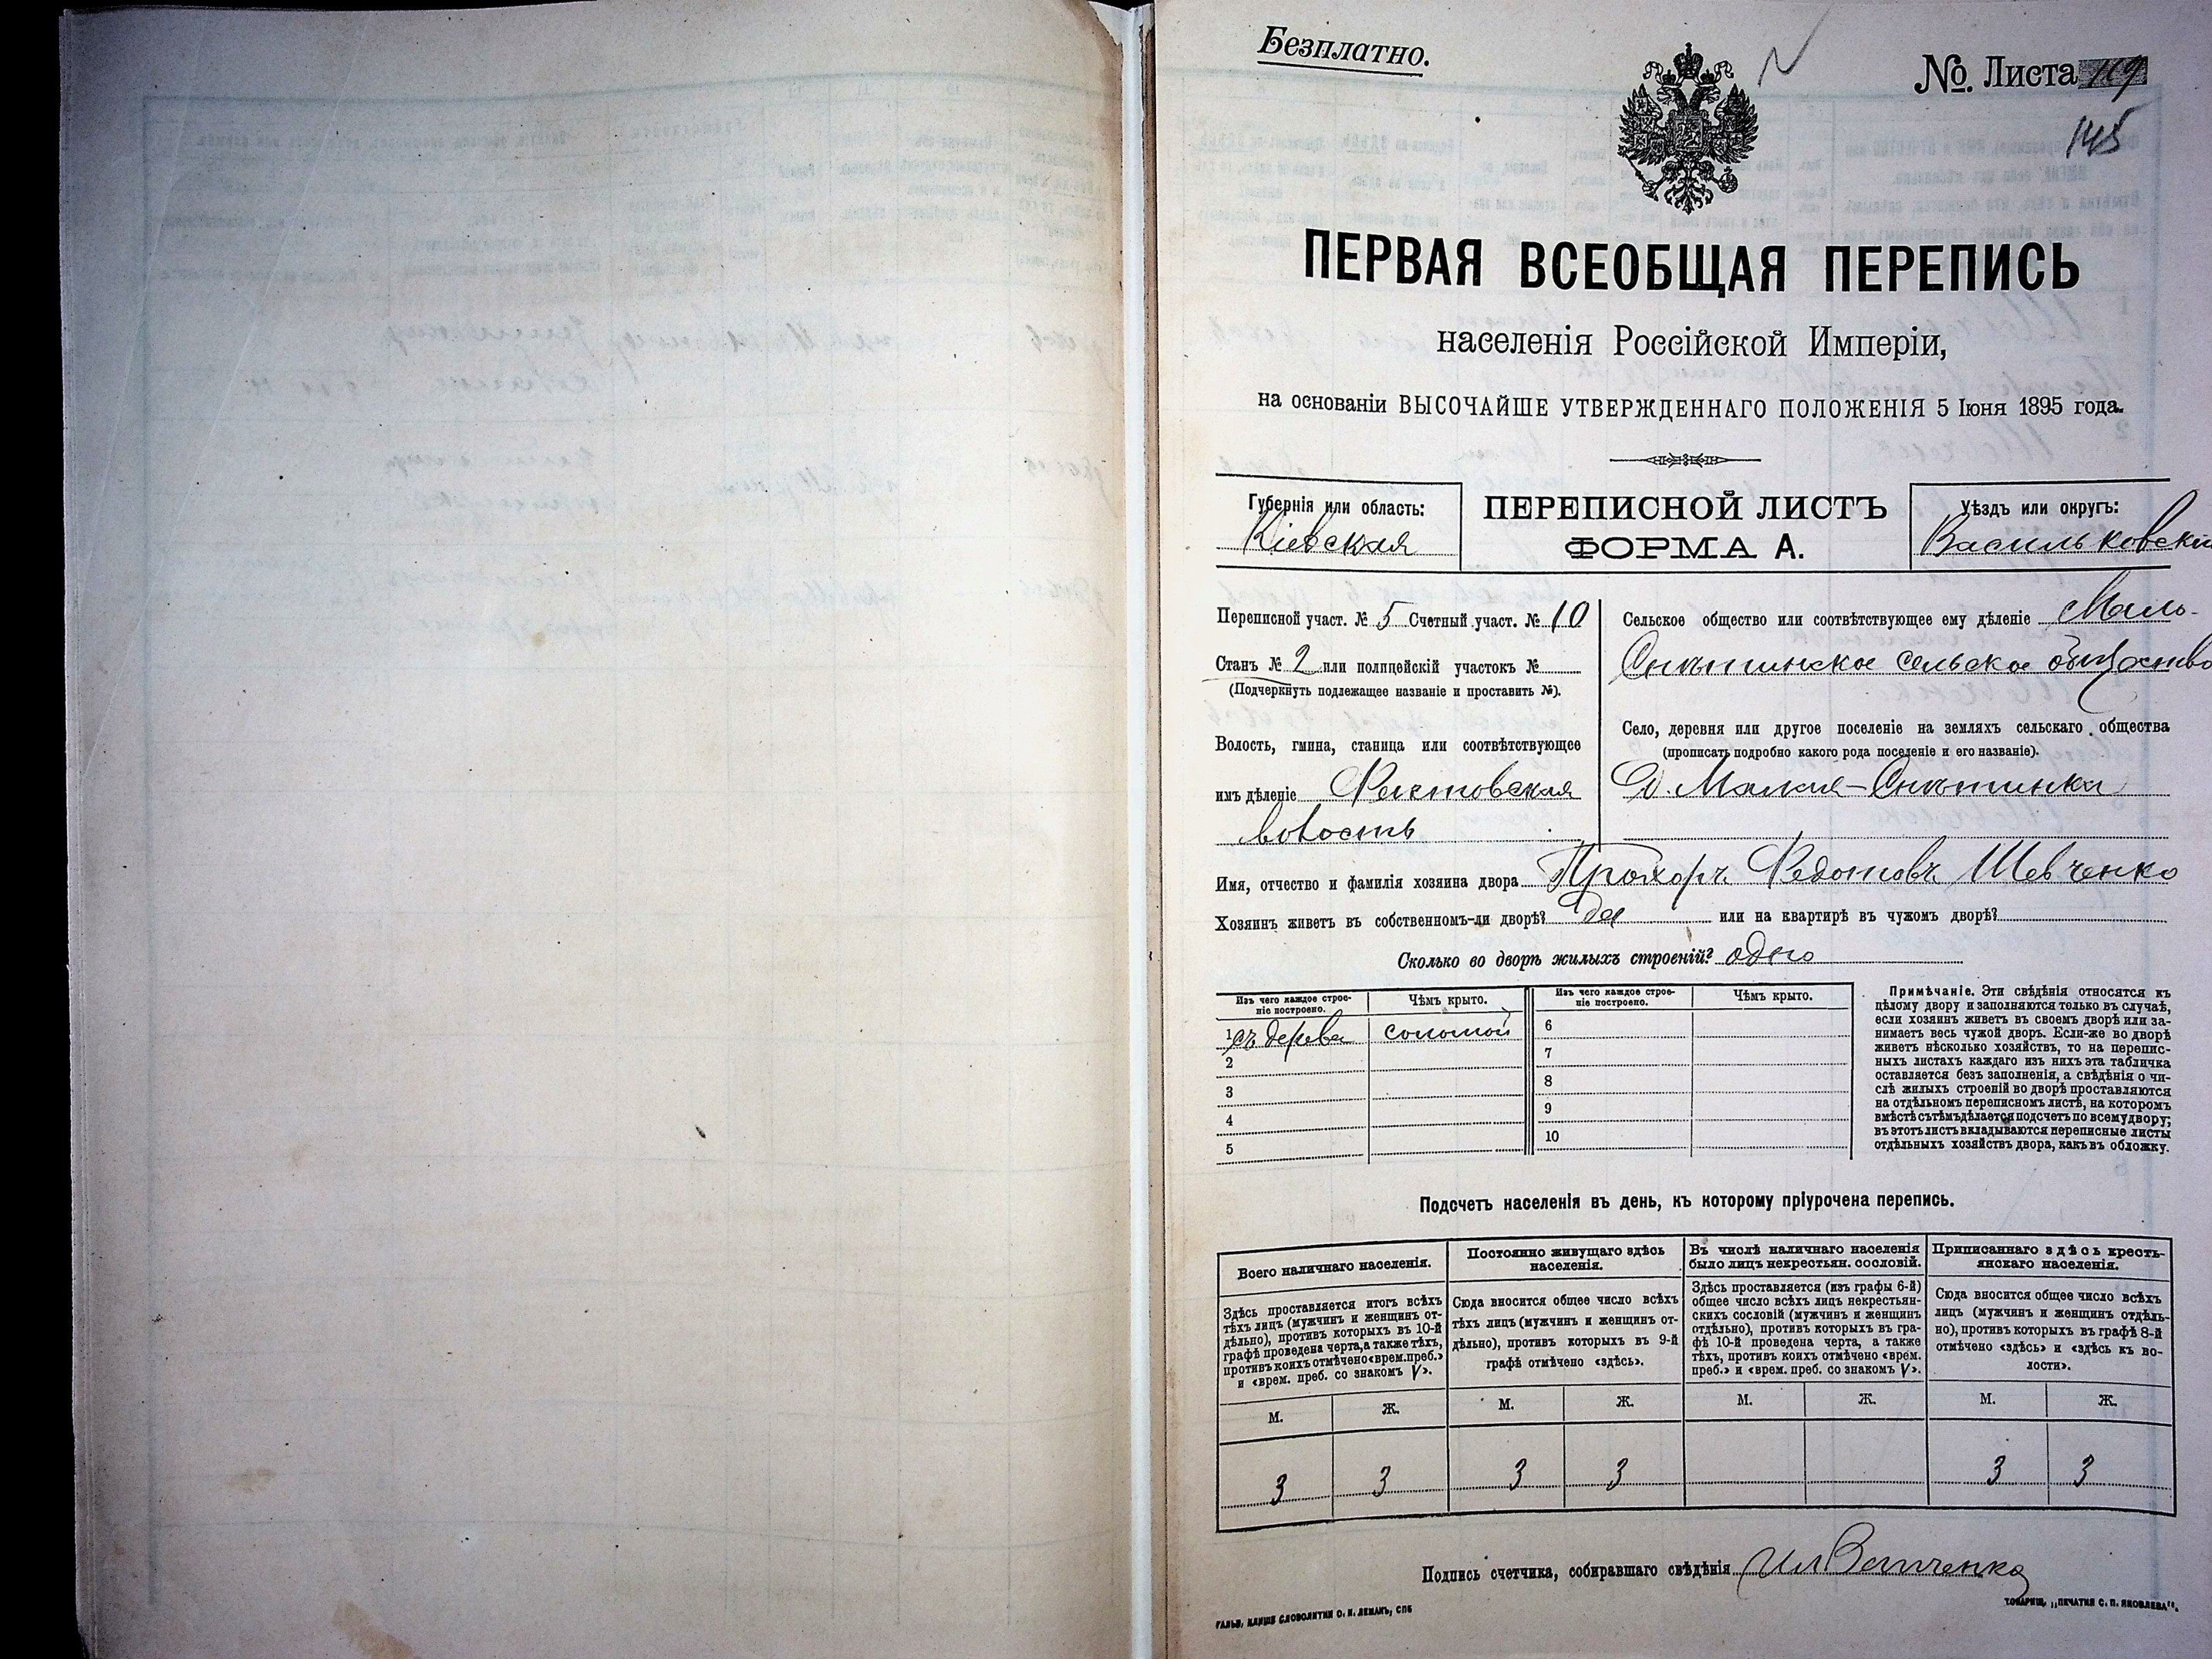 Безплатно.
№. Листа 119
145
ПЕРВАЯ ВСЕОБЩАЯ ПЕРЕПИСЬ
населенія Россійской Имперіи,
на основаніи ВЫСОЧАЙШЕ УТВЕРЖДЕННАГО ПОЛОЖЕНІЯ 5 Іюня 1895 года.
Губернія или область:
Кіевская
ПЕРЕПИСНОЙ ЛИСТЪ
ФОРМА А.
Уѣздъ или округъ:
Васильковскі
Переписной участ. № 5 Счетный участ. № 10
Станъ № 2 или полицейскій участокъ №
(Подчеркнуть подлежащее названіе и проставить №).
Волость, гмина, станица или соотвѣтствующее
имъ дѣленіе Фастовская
волость
Сельское общество или соотвѣтствующее ему дѣленіе Мало-
Снѣтинское сельское общество
Село, деревня или другое поселеніе на земляхъ сельскаго общества
(прописать подробно какого рода поселеніе и его названіе).
Д. Малая-Снѣтинка
Имя, отчество и фамилія хозяина двора Прохоръ Федотовъ Шевченко
Хозяинъ живетъ въ собственномъ-ли дворѣ? да или на квартирѣ въ чужомъ дворѣ?
Сколько во дворѣ жилыхъ строеній? одно
Изъ чего каждое строе-
ніе построено.
Чѣмъ крыто.
Изъ чего каждое строе-
ніе построено.
Чѣмъ крыто.
1 съ дерева соломой
2
3
4
5
6
7
8
9
10
Примѣчаніе. Эти свѣдѣнія относятся къ
цѣлому двору и заполняются только въ случаѣ,
если хозяинъ живетъ въ своемъ дворѣ или за-
нимаетъ весь чужой дворъ. Если-же во дворѣ
живетъ нѣсколько хозяйствъ, то на перепис-
ныхъ листахъ каждаго изъ нихъ эта табличка
оставляется безъ заполненія, а свѣдѣнія о чи-
слѣ жилыхъ строеній во дворѣ проставляются
на отдѣльномъ переписномъ листѣ, на которомъ
вмѣстѣ съ тѣмъ дѣлается подсчетъ по всему двору;
въ этотъ листъ вкладываются переписные листы
отдѣльныхъ хозяйствъ двора, какъ въ обложку.
Подсчетъ населенія въ день, къ которому пріурочена перепись.
Всего наличнаго населенія.
Здѣсь проставляется итогъ всѣхъ
тѣхъ лицъ (мужчинъ и женщинъ от-
дѣльно), противъ которыхъ въ 10-й
графѣ проведена черта, а также тѣхъ,
противъ коихъ отмѣчено «врем. преб.»
и «врем. преб. со знакомъ V».
М. Ж.
3 3
Постоянно живущаго здѣсь
населенія.
Сюда вносится общее число всѣхъ
тѣхъ лицъ (мужчинъ и женщинъ от-
дѣльно), противъ которыхъ въ 9-й
графѣ отмѣчено «здѣсь».
М. Ж.
3 3
Въ числѣ наличнаго населенія
было лицъ некрестьян. сословій.
Здѣсь проставляется (изъ графы 6-й)
общее число всѣхъ лицъ некрестьян-
скихъ сословій (мужчинъ и женщинъ
отдѣльно), противъ которыхъ въ гра-
фѣ 10-й проведена черта, а также
тѣхъ, противъ коихъ отмѣчено «врем.
преб.» и «врем. преб. со знакомъ V».
М. Ж.
Приписаннаго здѣсь кресть-
янскаго населенія.
Сюда вносится общее число всѣхъ
лицъ (мужчинъ и женщинъ отдѣль-
но), противъ которыхъ въ графѣ 8-й
отмѣчено «здѣсь» и «здѣсь къ во-
лости».
М. Ж.
3 3
Подпись счетчика, собиравшаго свѣдѣнія
ГАЛЬВ. КЛИШЕ СЛОВОЛИТНИ О. И. ЛЕМАНЪ, СПБ
ТОВАРИЩ. „ПЕЧАТНЯ С. П. ЯКОВЛЕВА".